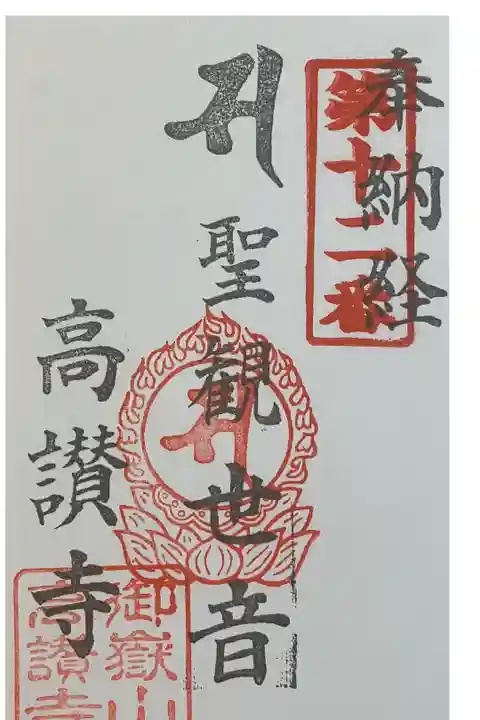 奉納経
第十二番
𑖭
聖観世音
𑖭
高讃寺
御嶽山
高讃寺